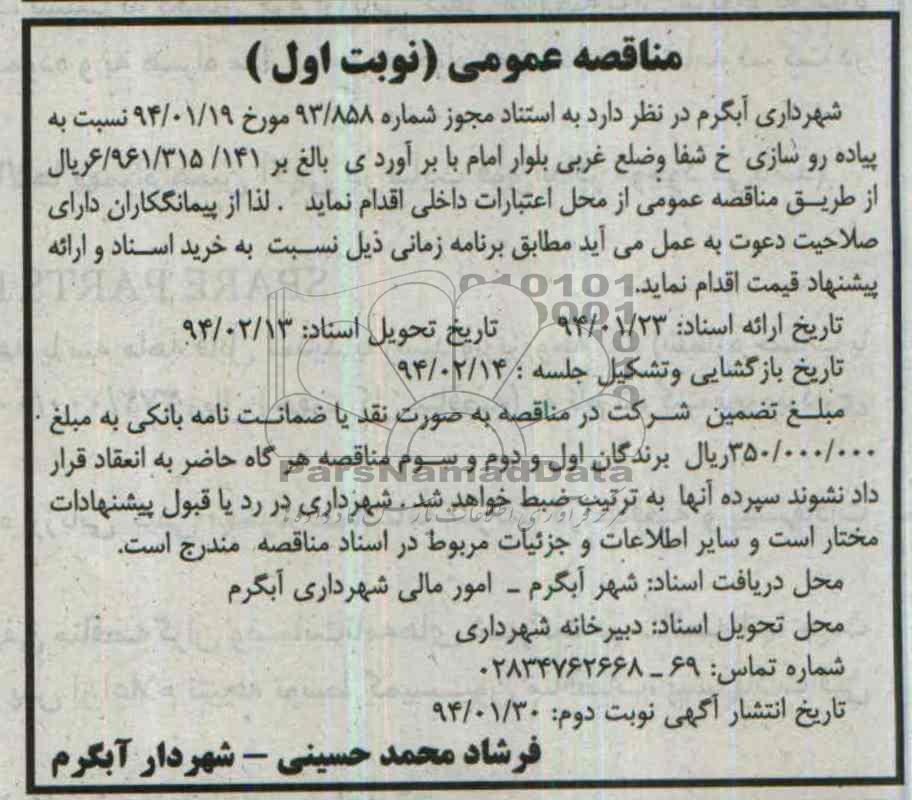 مناقصه عمومی (نوبت اول)
شهرداری آبگرم در نظر دارد به استناد مجوز شماره ۹۳/۸۵۸ مورخ ۹۴/۰۱/۱۹ نسبت به
پیاده رو سازی خ شفا وضلع غربی بلوار امام با بر آورد ی بالغ بر ۶/۹۶۱/۳۱۵/۱۴۱ریال
از طریق مناقصه عمومی از محل اعتبارات داخلی اقدام نماید . لذا از پیمانگکاران دارای
صلاحیت دعوت به عمل می آید مطابق برنامه زمانی ذیل نسبت به خرید اسناد و ارائه
پیشنهاد قیمت اقدام نماید.
تاریخ ارائه اسناد: ۹۴/۰۱/۲۳ تاریخ تحویل اسناد: ۹۴/۰۲/۱۳
تاریخ بازگشایی وتشکیل جلسه : ۹۴/۰۲/۱۴
مبلغ تضمین شرکت در مناقصه به صورت نقد یا ضمانت نامه بانکی به مبلغ
۳۵۰/۰۰۰/۰۰۰ریال برندگان اول و دوم و سوم مناقصه هر گاه حاضر به انعقاد قرار
داد نشوند سپرده آنها به ترتیب ضبط خواهد شد . شهرداری در رد یا قبول پیشنهادات
مختار است و سایر اطلاعات و جزئیات مربوط در اسناد مناقصه مندرج است.
محل دریافت اسناد: شهر آبگرم – امور مالی شهرداری آبگرم
محل تحویل اسناد: دبیرخانه شهرداری
شماره تماس: ۶۹ – ۰۲۸۳۴۷۶۲۶۶۸
تاریخ انتشار آگهی نوبت دوم: ۹۴/۰۱/۳۰
فرشاد محمد حسینی – شهردار آبگرم
ParsNamadData